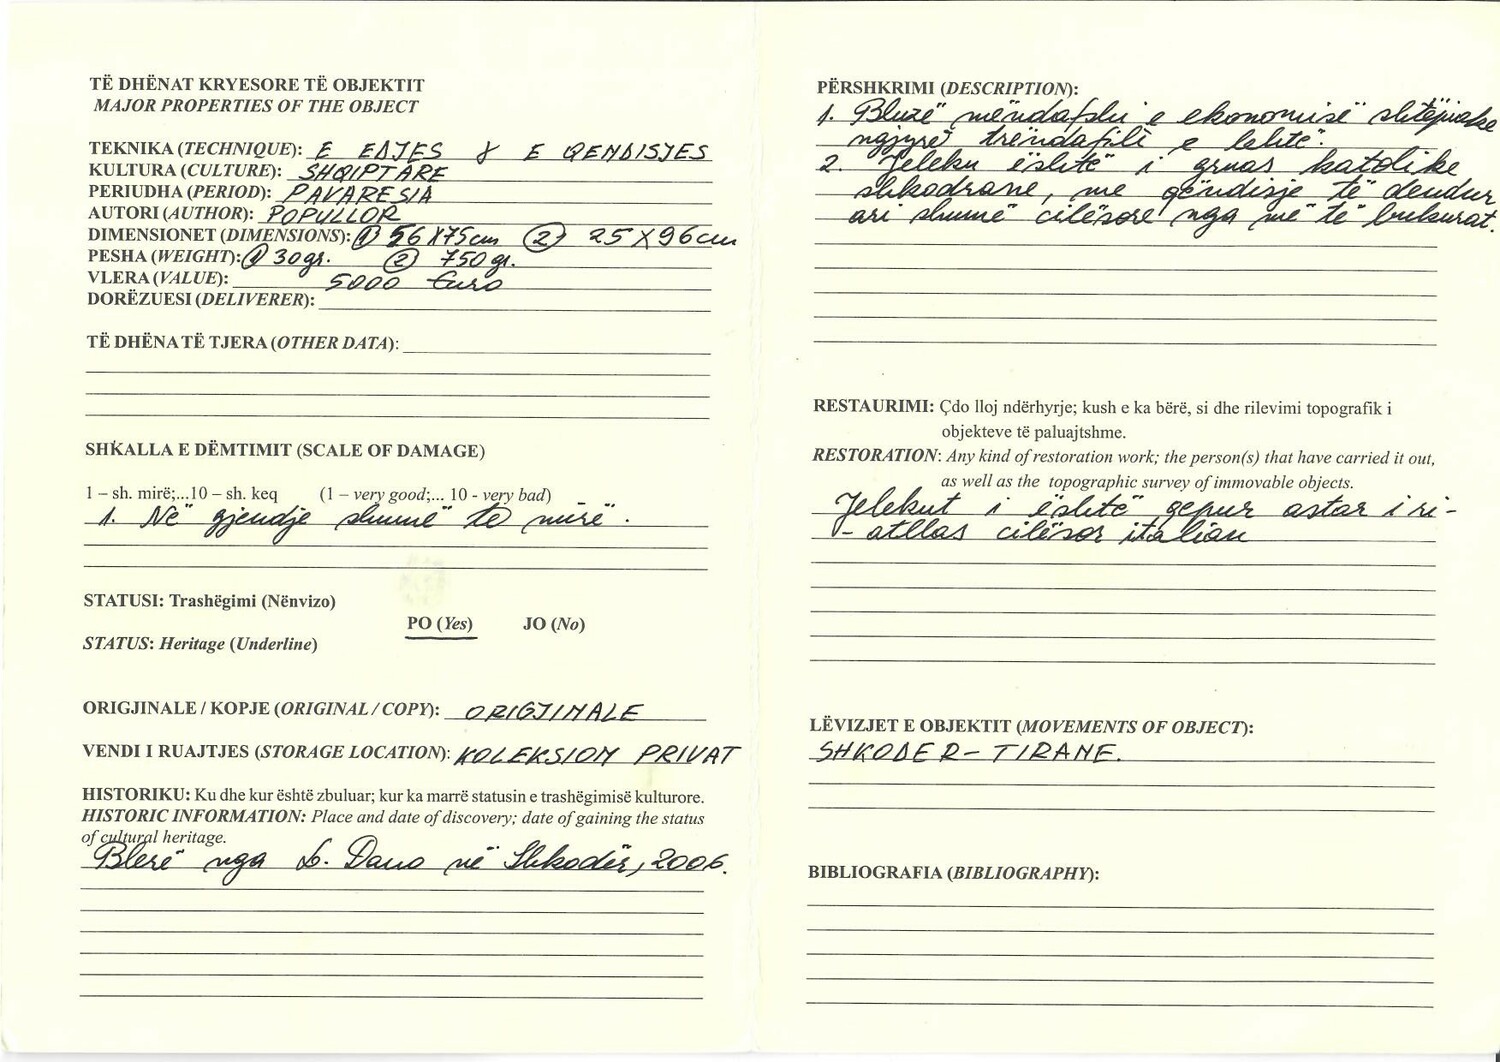 TË DHËNAT KRYESORE TË OBJEKTIT
MAJOR PROPERTIES OF THE OBJECT
TEKNIKA (TECHNIQUE): E EDJES & E QENDISJES
KULTURA (CULTURE): SHQIPTARE
PERIUDHA (PERIOD): PAVARESIA
AUTORI (AUTHOR): POPULLOR
DIMENSIONET (DIMENSIONS): ① 56X75cm ② 25X96cm
PESHA (WEIGHT): ① 30gr. ② 750gr.
VLERA (VALUE): 5000 Euro
DORËZUESI (DELIVERER):
TË DHËNA TË TJERA (OTHER DATA):
SHKALLA E DËMTIMIT (SCALE OF DAMAGE)
1 – sh. mirë;...10 – sh. keq (1 – very good;... 10 - very bad)
1. Në gjendje shumë të mirë.
STATUSI: Trashëgimi (Nënvizo)
PO (Yes) JO (No)
STATUS: Heritage (Underline)
ORIGJINALE / KOPJE (ORIGINAL / COPY): ORIGJINALE
VENDI I RUAJTJES (STORAGE LOCATION): KOLEKSION PRIVAT
HISTORIKU: Ku dhe kur është zbuluar; kur ka marrë statusin e trashëgimisë kulturore.
HISTORIC INFORMATION: Place and date of discovery; date of gaining the status
of cultural heritage.
Blerë nga L. Dano në Shkodër, 2006.
PËRSHKRIMI (DESCRIPTION):
1. Bluzë mëndafshi e ekonomisë shtëpiake
ngjyrë trëndafili e lehtë.
2. Jeleku është i gruas katolike
shkodrane, me qëndisje të dendur
ari shumë cilësore nga më të bukurat.
RESTAURIMI: Çdo lloj ndërhyrje; kush e ka bërë, si dhe rilevimi topografik i
objekteve të paluajtshme.
RESTORATION: Any kind of restoration work; the person(s) that have carried it out,
as well as the topographic survey of immovable objects.
Jelekut i është qepur astar i ri-
- atllas cilësor italian
LËVIZJET E OBJEKTIT (MOVEMENTS OF OBJECT):
SHKODER – TIRANE.
BIBLIOGRAFIA (BIBLIOGRAPHY):